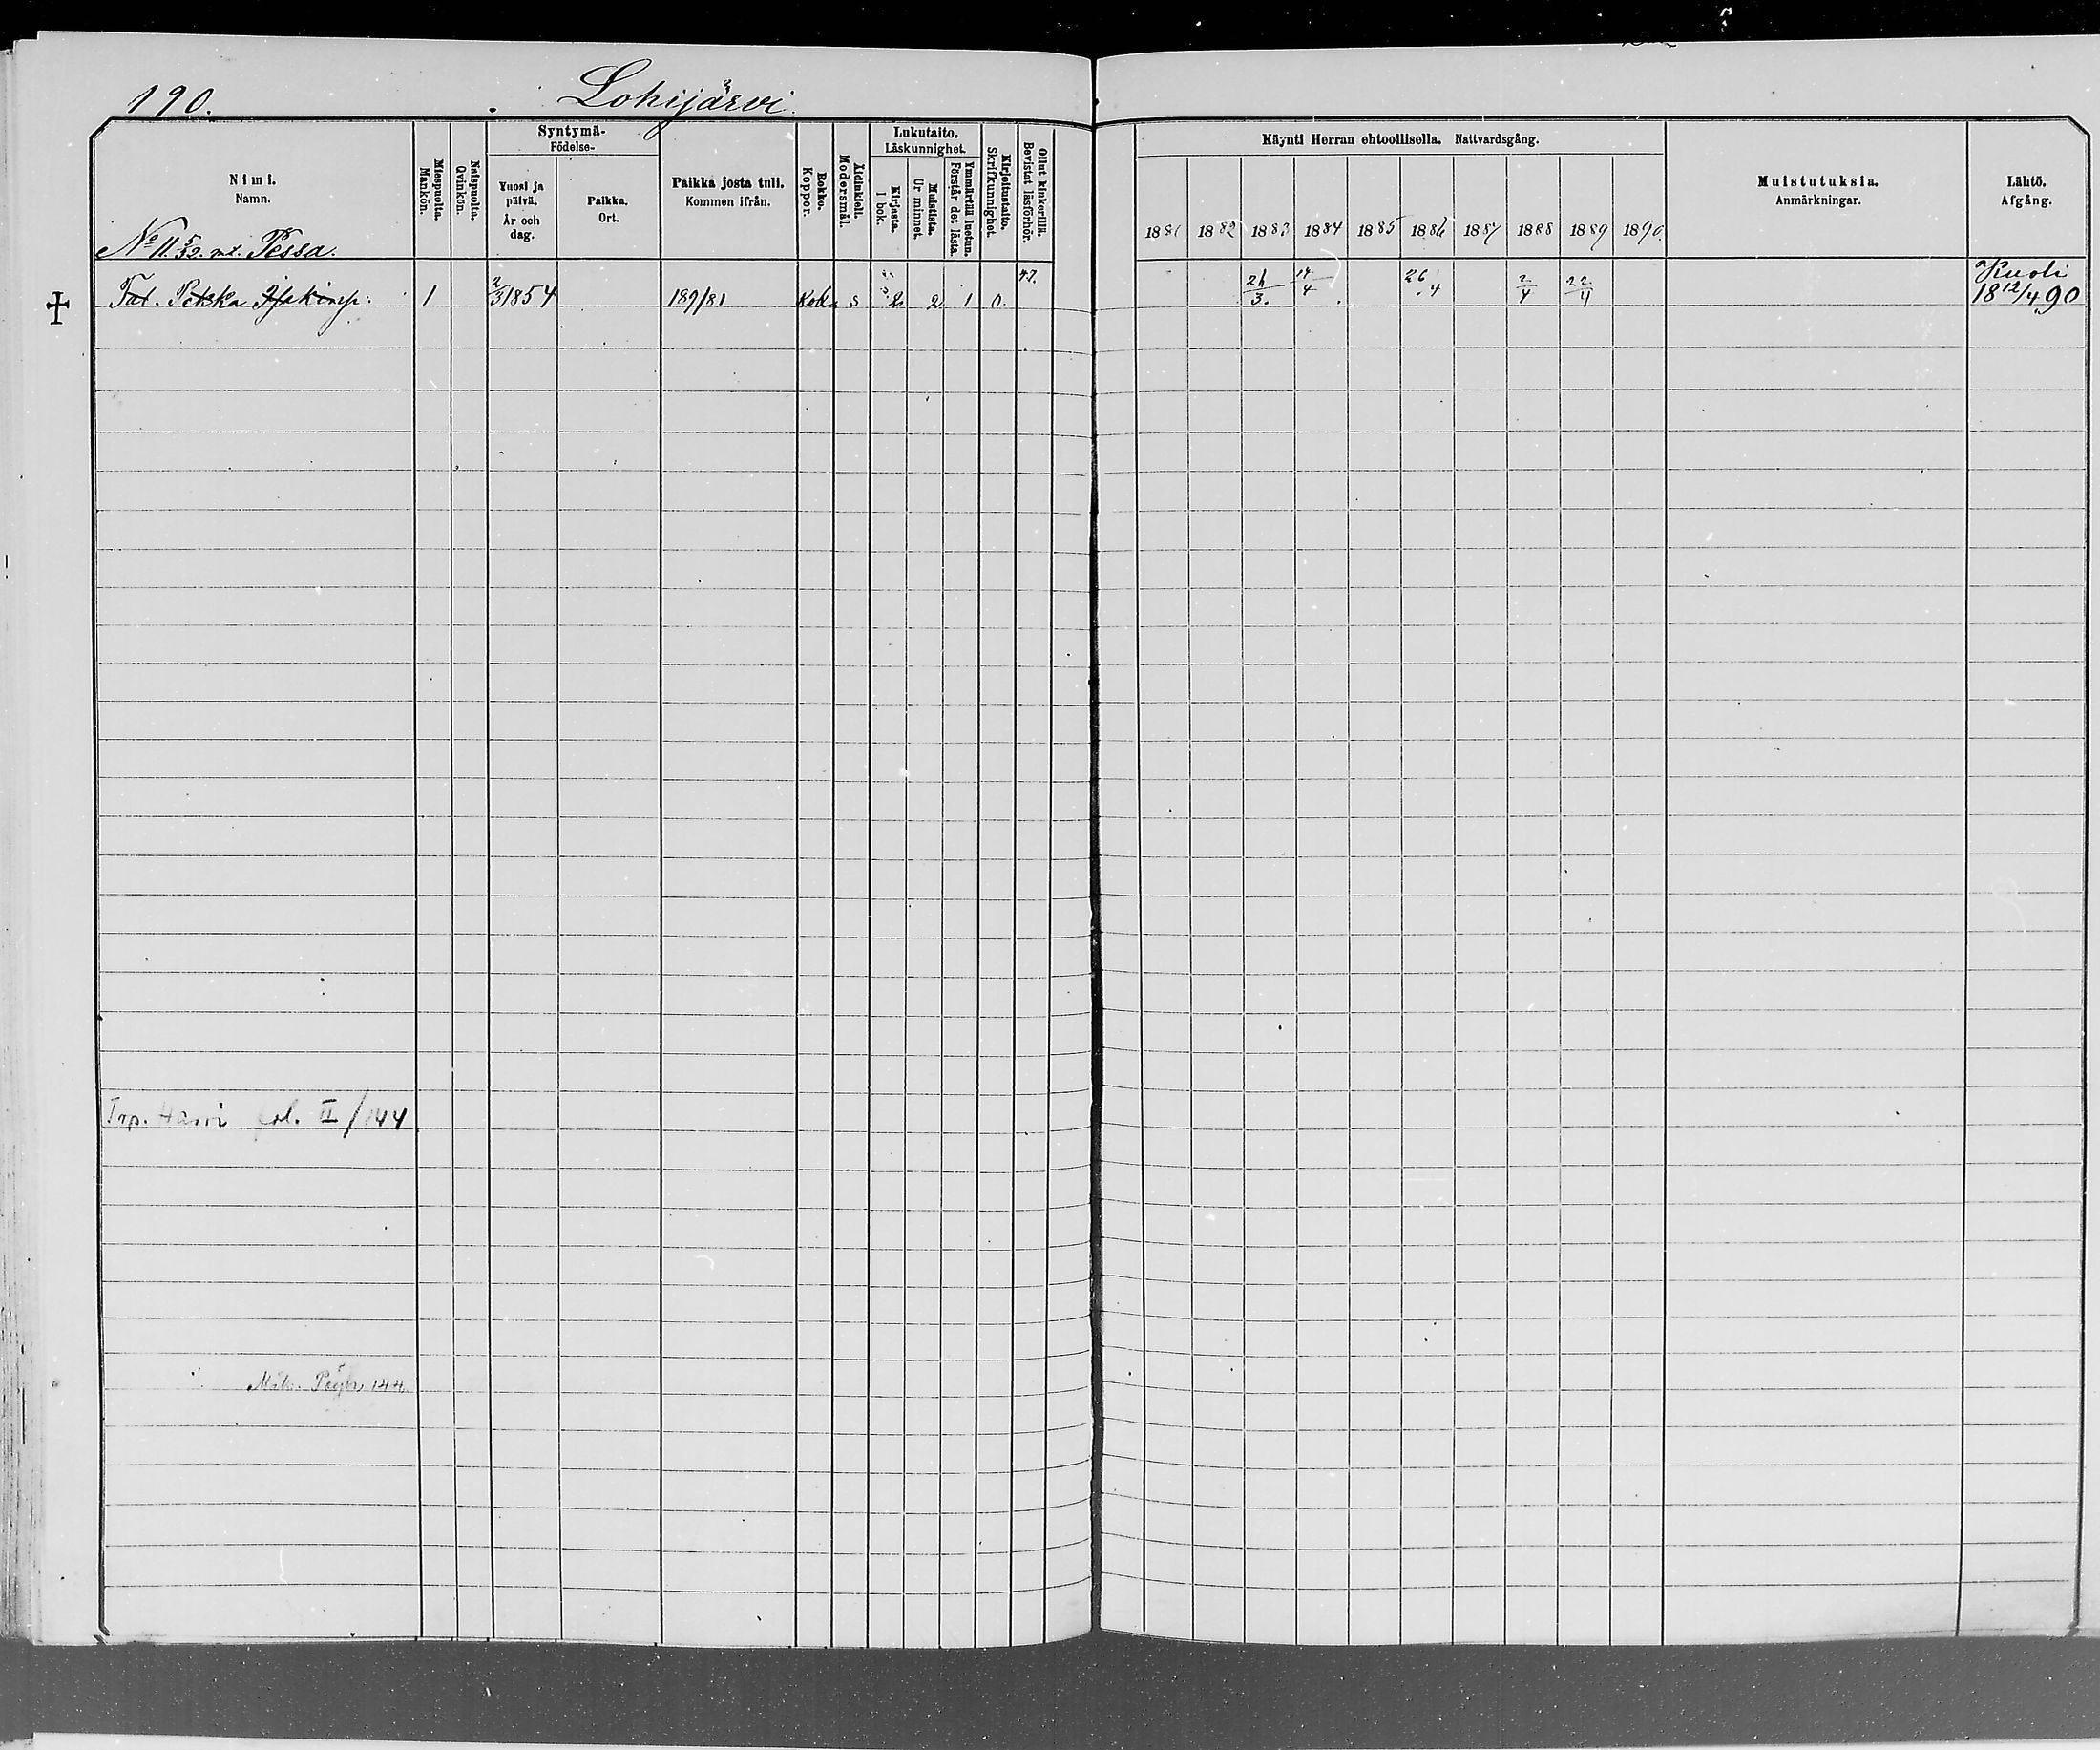 190. Lohijärvi
Nimi.
Namn.
Miespuolta.
Mankön.
Naispuolta.
Qvinkön.
Syntymä-
Födelse-
Vuosi ja
päivä.
År och
dag.
Paikka.
Ort.
Paikka josta tuli.
Kommen ifrån.
Rokko.
Koppor.
Äidinkieli.
Modersmål.
Lukutaito.
Läskunnighet.
Kirjasta.
I bok.
Muistista.
Ur minnet.
Ymmärtää luetun.
Förstår det lästa.
Kirjoitustaito.
Skrifkunnighet.
Ollut kinkerillä.
Bevistat läsförhör.
Käynti Herran ehtoollisella. Nattvardsgång.
1881 1882 1883 1884 1885 1886 1887 1888 1889 1890.
Muistutuksia.
Anmärkningar.
Lähtö.
Afgång.
No 11. 5/32. mt. Pessa.
Tal. Pekka 1 2/3 1854 189/81 Rok. s 2 2 1 0. 47. 26/3. 14/4 26/4 2/4 22/4 Kuoli
18 12/4 90
fol. II/144
144